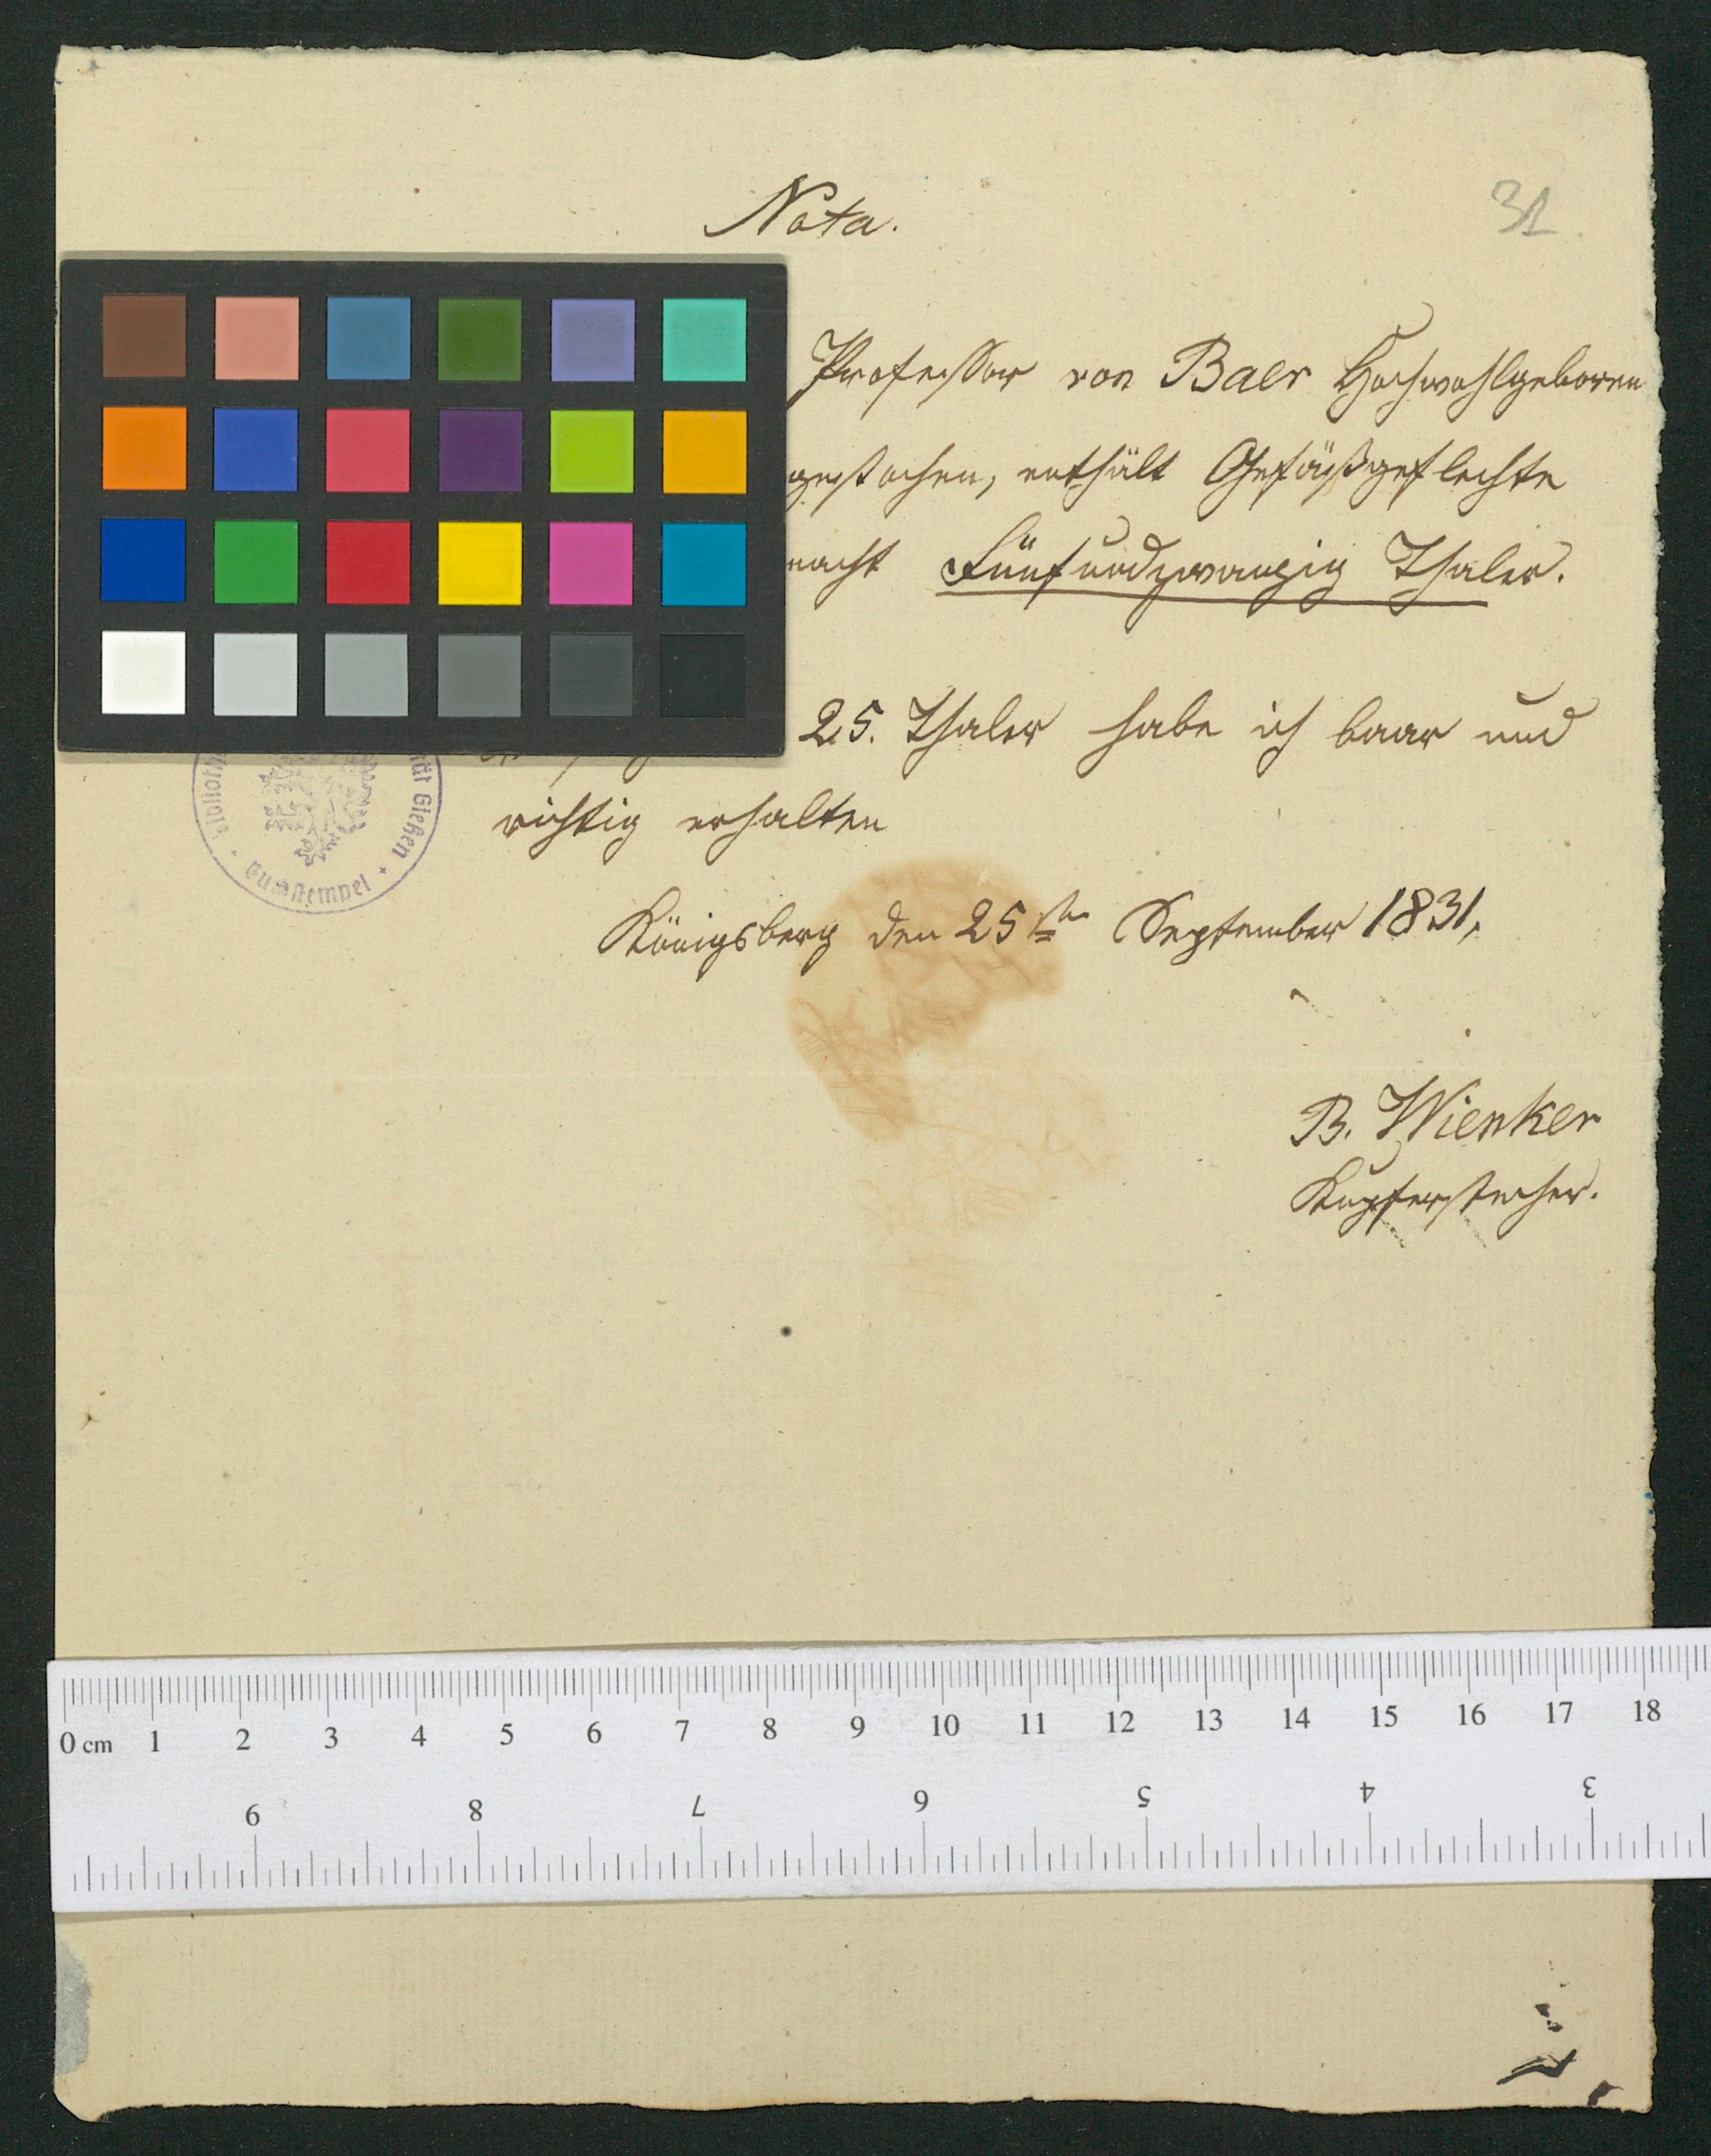 Nota.
31
Professor von Baer Hochwohlgeboren
gestochen, enthält Gefäßgeflechte
macht Fünfundzwanzig Thaler.
25. Thaler habe ich baar und
richtig erhalten
Königsberg den 25ten September 1831.
B. Wienker
Kupferstecher.
Gießen
0 cm 1 2 3 4 5 6 7 8 9 10 11 12 13 14 15 16 17 18
9 8 7 6 5 4 3